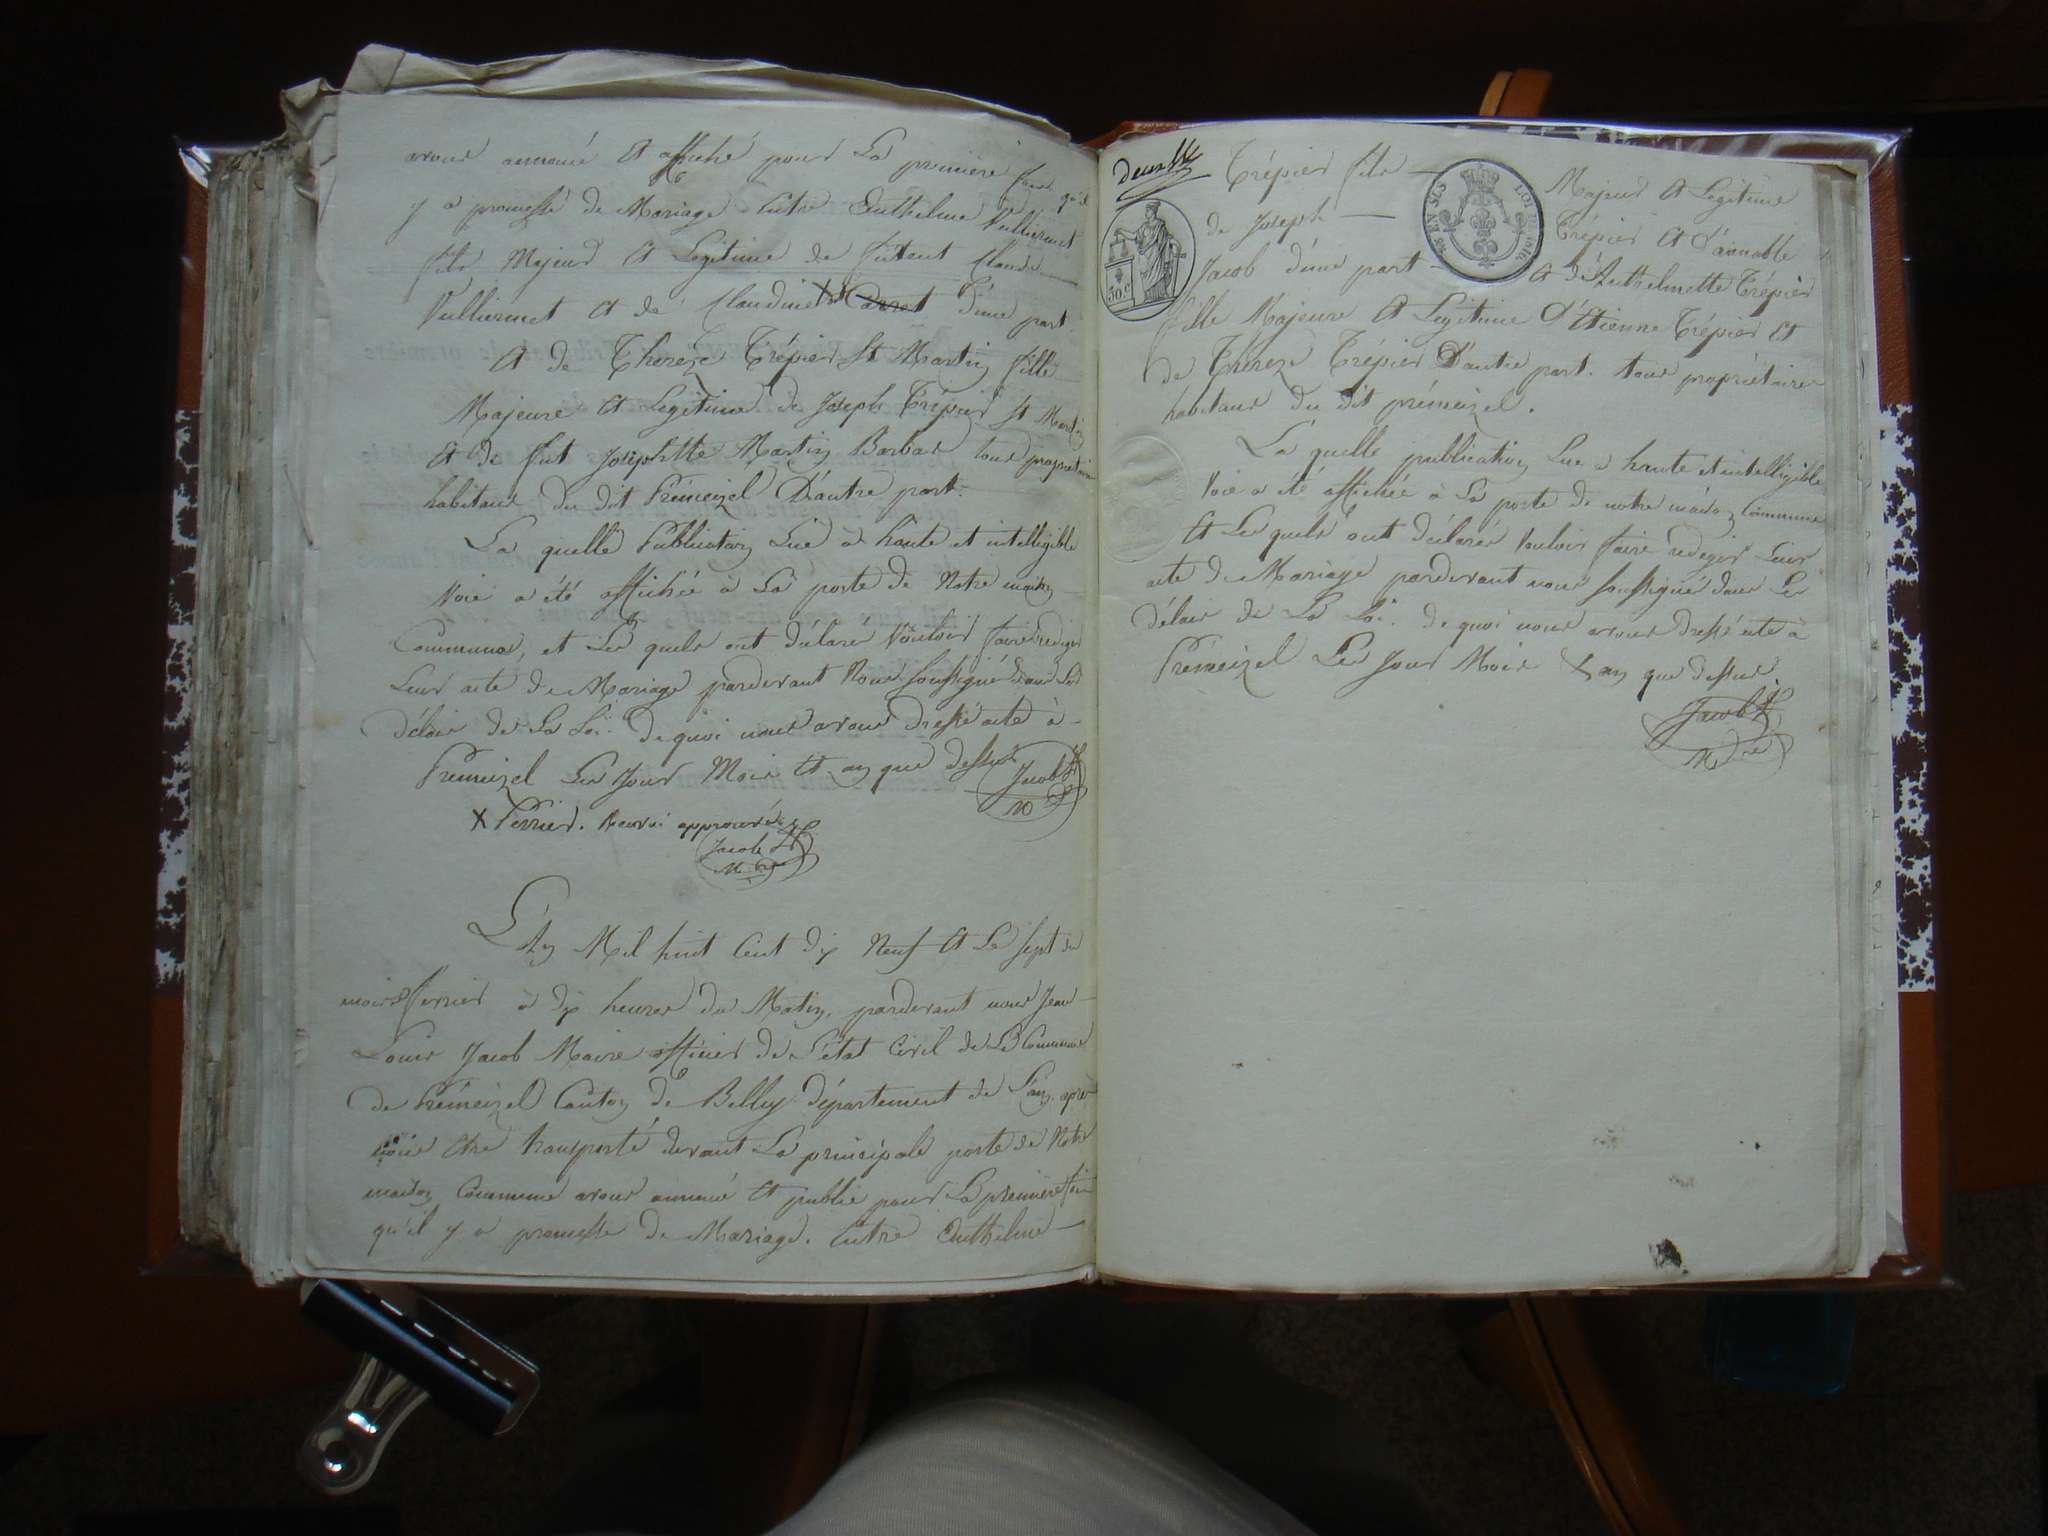 avons annoncé et affiché pour La première fois qu'il
y a promesse de Mariage Entre Anthelme Vulliermet
fils Majeur et Legitime de futent Claude
Vulliermet et de Claudine X Carret d'une part.
et de Thereze Trépier St Martin fille
Majeure et Legitime de Joseph Trépier St Martin
et de fut Josephtte Martin Barbar tous proprietaires
habitans du dit Prémeizel D'autre part.
La quelle Publication Lue à haute et intelligible
Voie a été affichée à La porte de Notre maison
Commune, et Les quels ont déclaré Vouloir faire rediger
Leur acte de Mariage pardevant Nous soussigné dans Les
délais de La Loi. de quoi nous avons dressé acte à
Prémeizel Les Jour Mois et an que dessus
Jacob
X Perrier. Renvoi approuvé
Jacob
L'An Mil huit Cent dix Neuf et Le sept du
mois fevrier à dix heures du Matin, pardevant nous Jean
Louis Jacob Maire officier de L'état Civil de La Commune
de Prémeizel Canton de Belley département de L'ain, après
nous être transporté devant La principale porte de Notre
maison Commune avons annoncé et publié pour La première fois
qu'il y a promesse de Mariage. Entre Anthelme
Trépier fils Majeur et Legitime
de Joseph Trépier et D'aimable
Jacob d'une part et d'Anthelmette Trépier
fille Majeure et Legitime d'Etienne Trépier et
de Théreze Trépier D'autre part. tous propriétaires
habitans du dit prémeizel.
La quelle publication Lue à haute et intelligible
Voie a été affichée à La porte de notre maison Commune
et Les quels ont déclarés Vouloir faire rediger Leur
acte de Mariage pardevant nous soussigné dans Les
délais de La Loi. de quoi nous avons dressé acte à
Prémeizel Les Jour Mois & an que dessus.
Jacob
50 c
EN SUS
LOI DE 1816